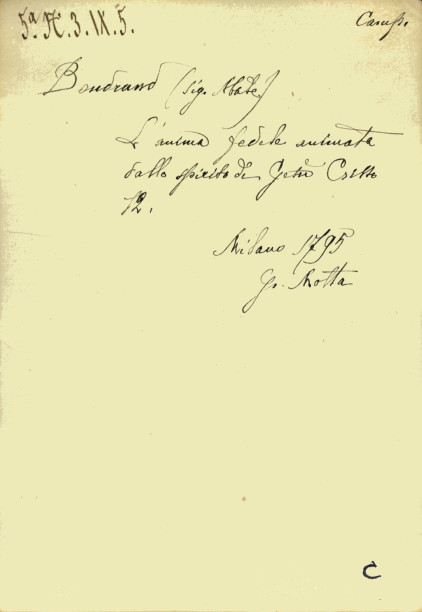 5ª A. 3. IX. 5.
Camp.
Baudrand (Sig. Abate)
L'anima fedele animata
dallo spirito di Gesù Cristo
12.
Milano 1795
Motta
C